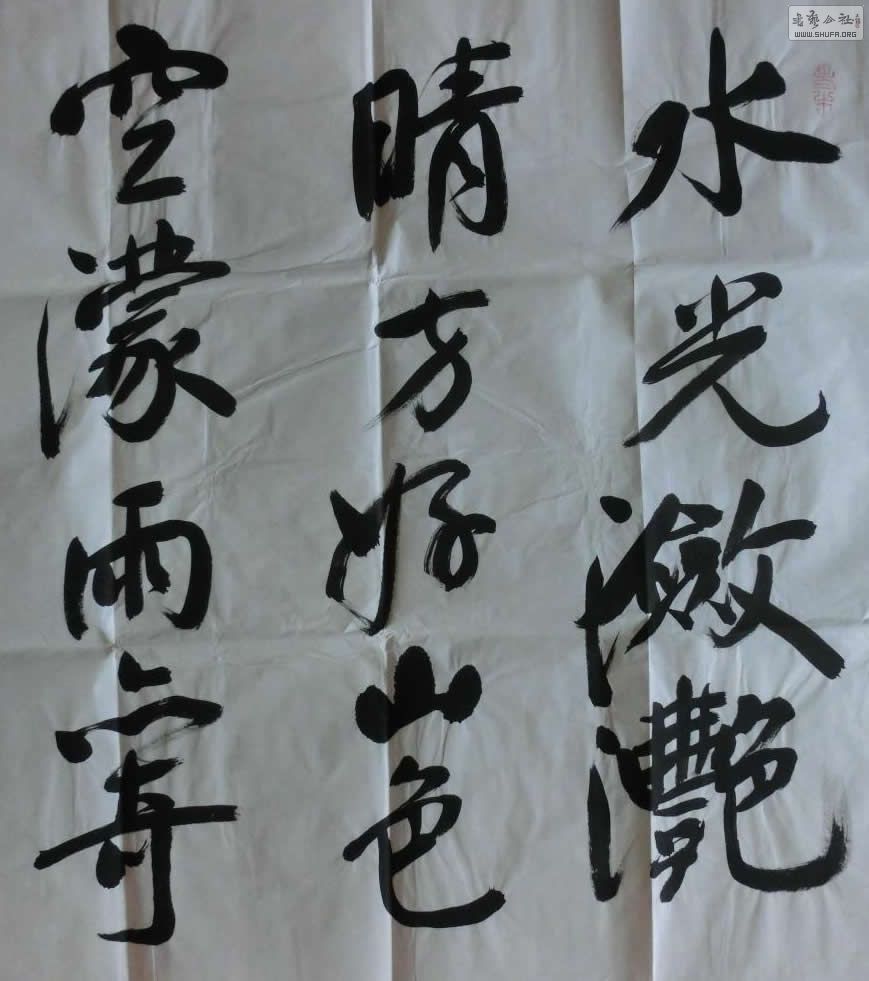 水光瀲灧
晴方好山色
空濛雨亦奇
書藝公社
WWW.SHUFA.ORG